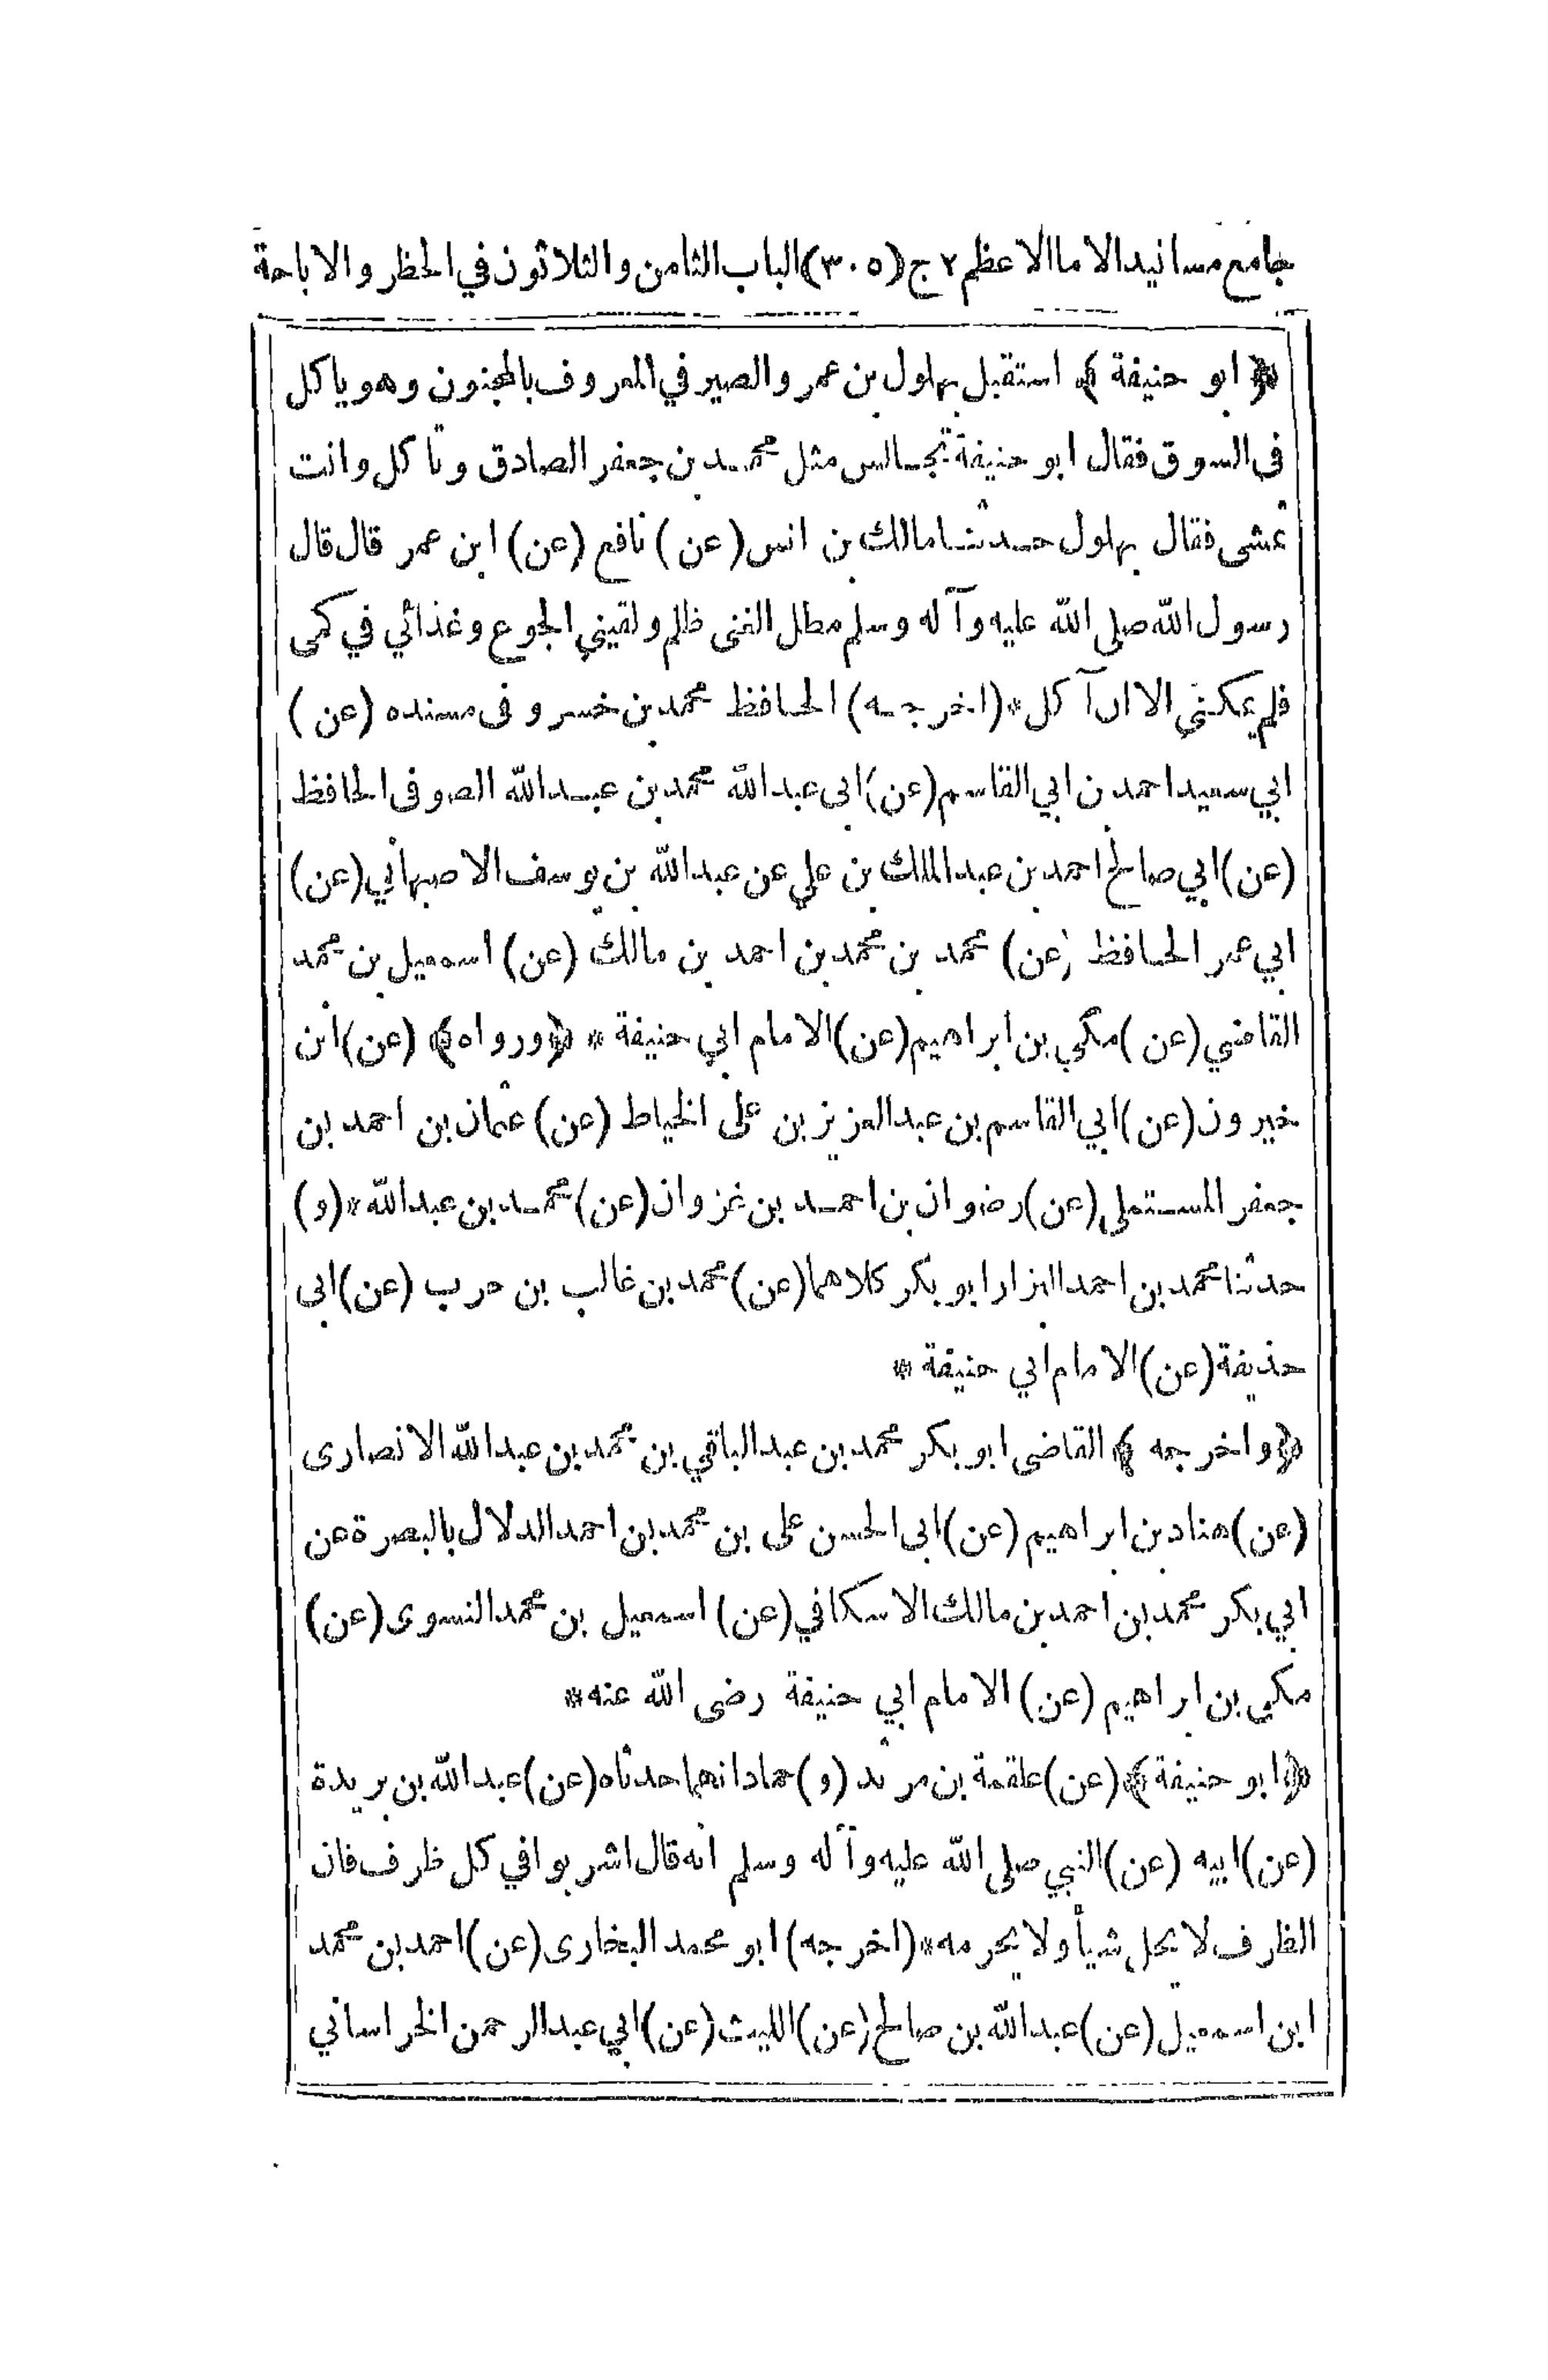 جامع مسانيد الاماالاعظم ٢ ج (٣٠٥) الباب الثامن والثلاثون في الحظر والاباحة
﴿ابو حنيفة﴾ استقبل بهلول بن عمر والصيرفي المعروف بالمجنون وهو ياكل
فى السوق فقال ابو حنيفة تجالس مثل محمد بن جعفر الصادق وتأكل وانت
تمشى فقال بهلول حدثنا مالك بن انس (عن) نافع (عن) ابن عمر قال قال
رسول الله صلى الله عليه وآله وسلم مطل الغنى ظلم ولقيني الجوع وغذائي في كمى
فلم يمكنى الا ان آكل * (اخرجه) الحافظ محمد بن خسرو فى مسنده (عن)
ابي سعيد احمد بن ابي القاسم (عن) ابى عبد الله محمد بن عبد الله الصوفى الحافظ
(عن) ابي صالح احمد بن عبد الملك بن علي عن عبد الله بن يوسف الاصبهاني (عن)
ابي عمر الحافظ (عن) محمد بن محمد بن احمد بن مالك (عن) اسمعيل بن محمد
القاضي (عن) مكي بن ابراهيم (عن) الامام ابي حنيفة * ﴿ورواه﴾ (عن) ابن
خيرون (عن) ابي القاسم بن عبد العزيز بن على الخياط (عن) عثمان بن احمد بن
جعفر المستملى (عن) رضوان بن احمد بن غزوان (عن) محمد بن عبد الله * (و)
حدثنا محمد بن احمد البزار ابو بكر كلاهما (عن) محمد بن غالب بن حرب (عن) ابى
حذيفة (عن) الامام ابي حنيفة *
﴿واخرجه﴾ القاضى ابو بكر محمد بن عبد الباقي بن محمد بن عبد الله الانصارى
(عن) هناد بن ابراهيم (عن) ابى الحسن على بن محمد بن احمد الدلال بالبصرة عن
ابي بكر محمد بن احمد بن مالك الاسكافي (عن) اسمعيل بن محمد النسوى (عن)
مكي بن ابراهيم (عن) الامام ابي حنيفة رضى الله عنه *
﴿ابو حنيفة﴾ (عن) علقمة بن مرثد (و) حماد انهما حدثاه (عن) عبد الله بن بريدة
(عن) ابيه (عن) النبي صلى الله عليه وآله وسلم انه قال اشربوا في كل ظرف فان
الظرف لا يحل شيأ ولا يحرمه * (اخرجه) ابو محمد البخارى (عن) احمد بن محمد
ابن اسمعيل (عن) عبد الله بن صالح (عن) الليث (عن) ابي عبد الرحمن الخراساني